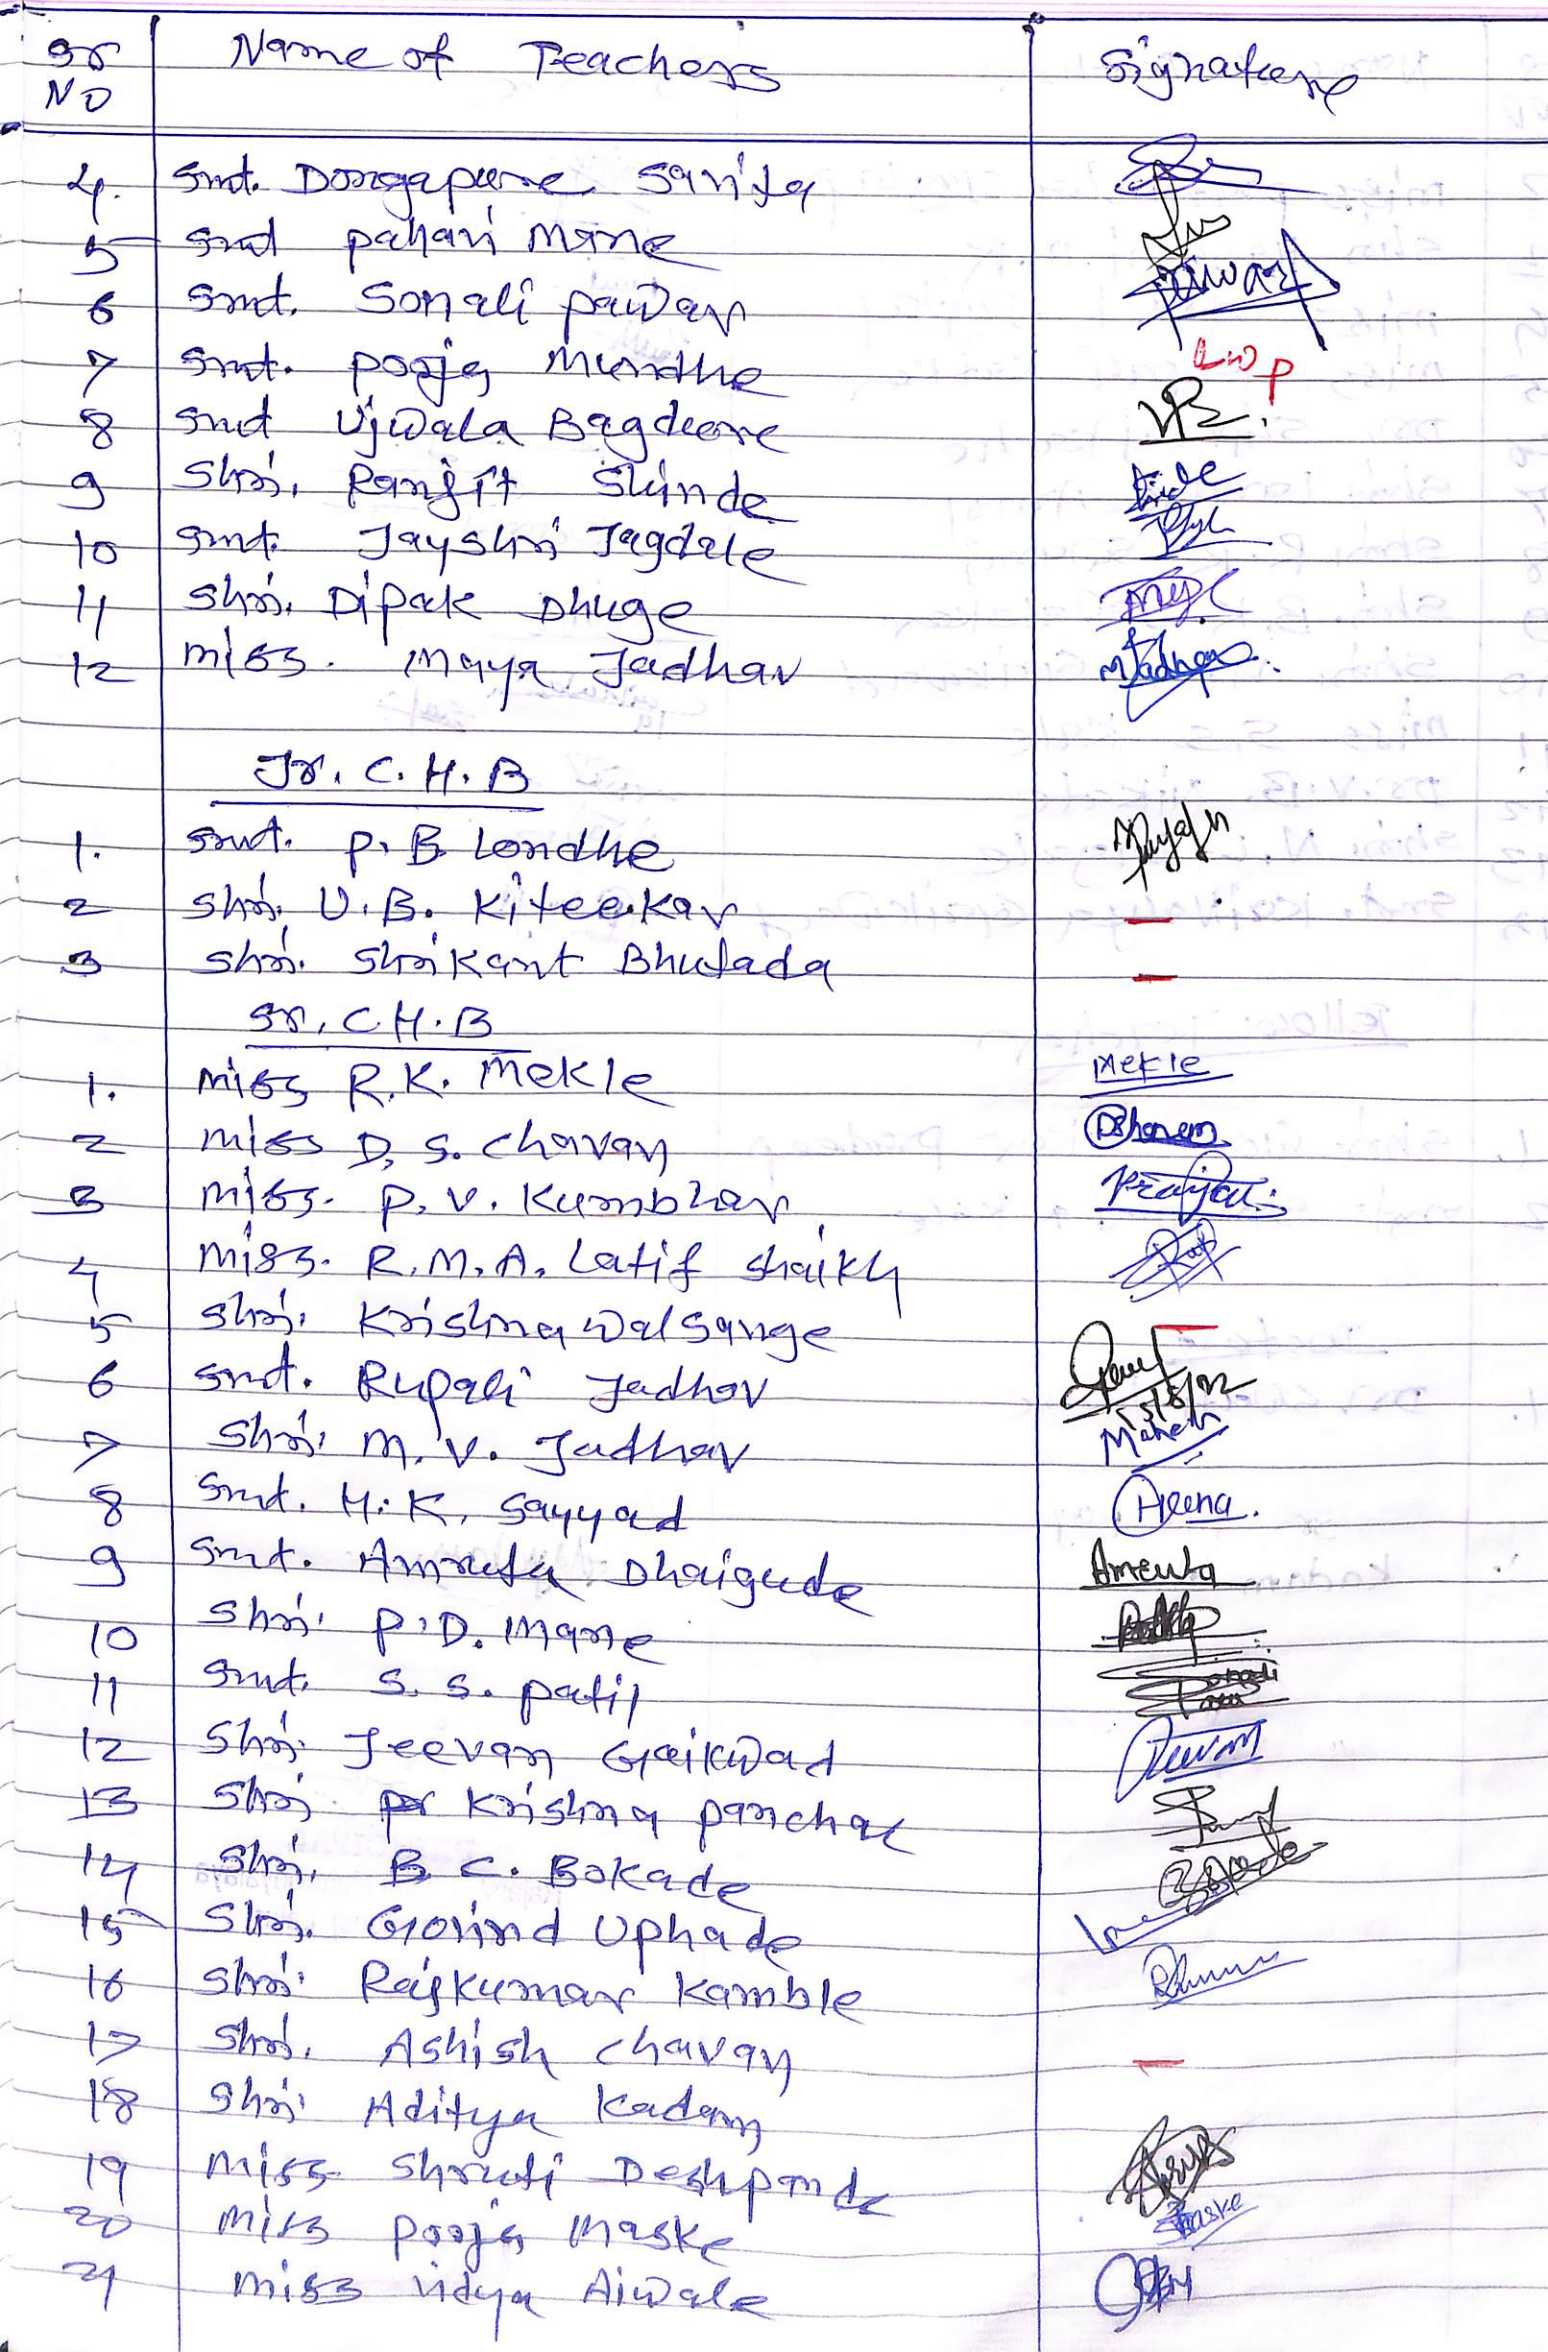 Sr No Name of Teachers Signature
4. Smt. Dongapure Sarita
5 Smt Pahavi Mane
6 Smt. Sonali Pawar Pawar
7 Smt. Pooja Mundhe LWP
8 Smt Ujwala Bagdure
9 Shri. Ranjit Shinde
10 Smt. Jayshri Jagdale
11 Shri. Dipak Dhuge
12 Miss. Maya Jadhav MJadhav
Jr. C.H.B
1. Smt. P.B Londhe
2 Shri. U.B. Kiteekar —
3 Shri. Shrikant Bhutada —
Sr. C.H.B
1. Miss R.K. Mekle Mekle
2 Miss D.S. Chavan
3 Miss. P.V. Kumbhar
4 Miss. R.M.A. Latif Shaikh
5 Shri. Krishna Walsange —
6 Smt. Rupali Jadhav
7 Shri. M.V. Jadhav Mahesh
8 Smt. H.K. Sayyad Heena.
9 Smt. Amruta Dhaigude Amruta
10 Shri. P.D. Mane
11 Smt. S.S. Patil
12 Shri Jeevan Gaikwad Jeevan
13 Shri Krishna Panchal
14 Shri. B.C. Bokade
15 Shri. Govind Uphade
16 Shri. Rajkumar Kamble
17 Shri. Ashish Chavan —
18 Shri Aditya Kadam
19 Miss Shruti Deshpande
20 Miss Pooja Maske Maske
21 Miss Vidya Aiwale